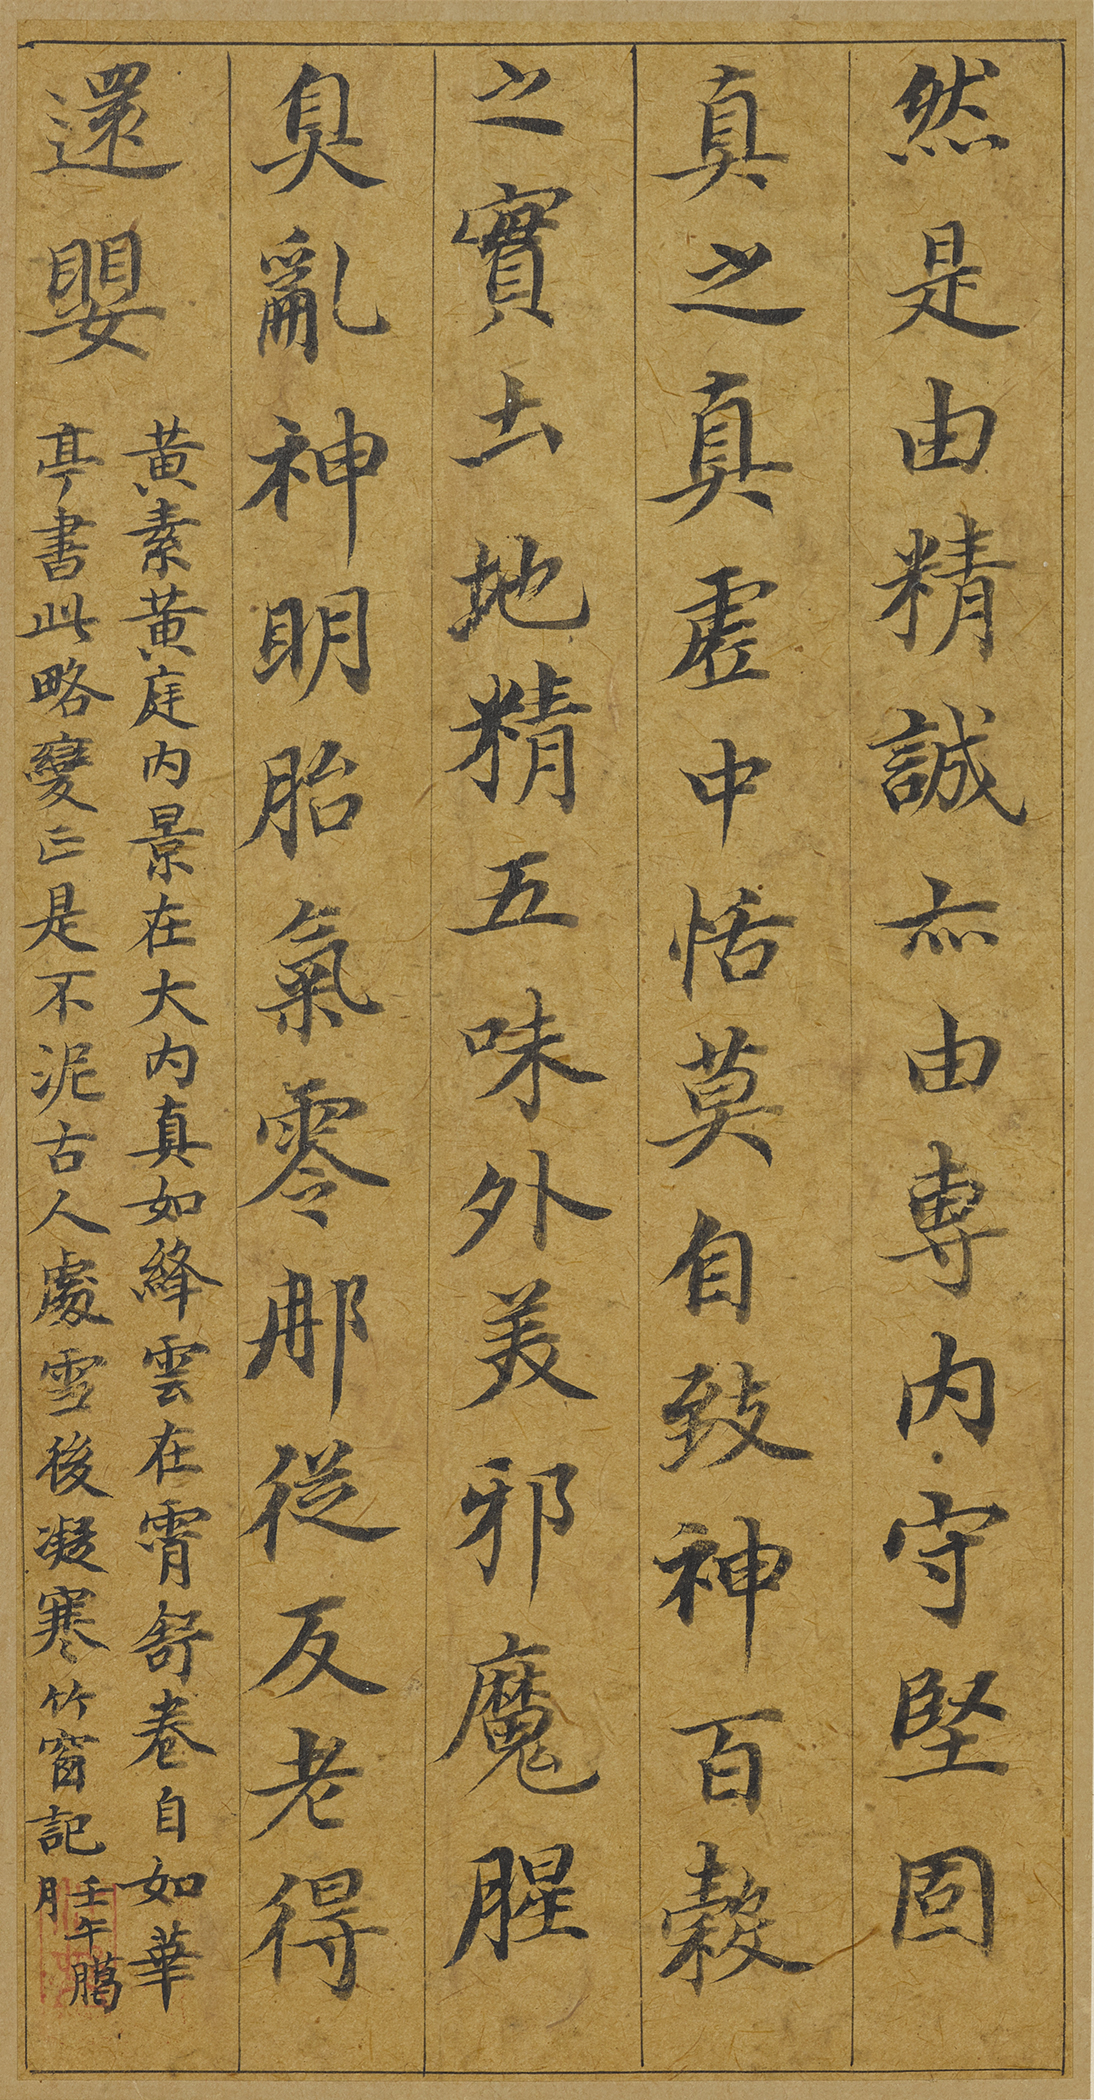 然是由精誠亦由專內守堅固
真之真虛中恬莫自致神百穀
之實土地精五味外美邪魔腥
臭亂神明胎氣零那從反老得
還嬰
黃素黃庭內景在大內真如絳雲在霄舒卷自如華
亭書此略變正是不泥古人處雪後凝寒竹窗記
壬午臈
月